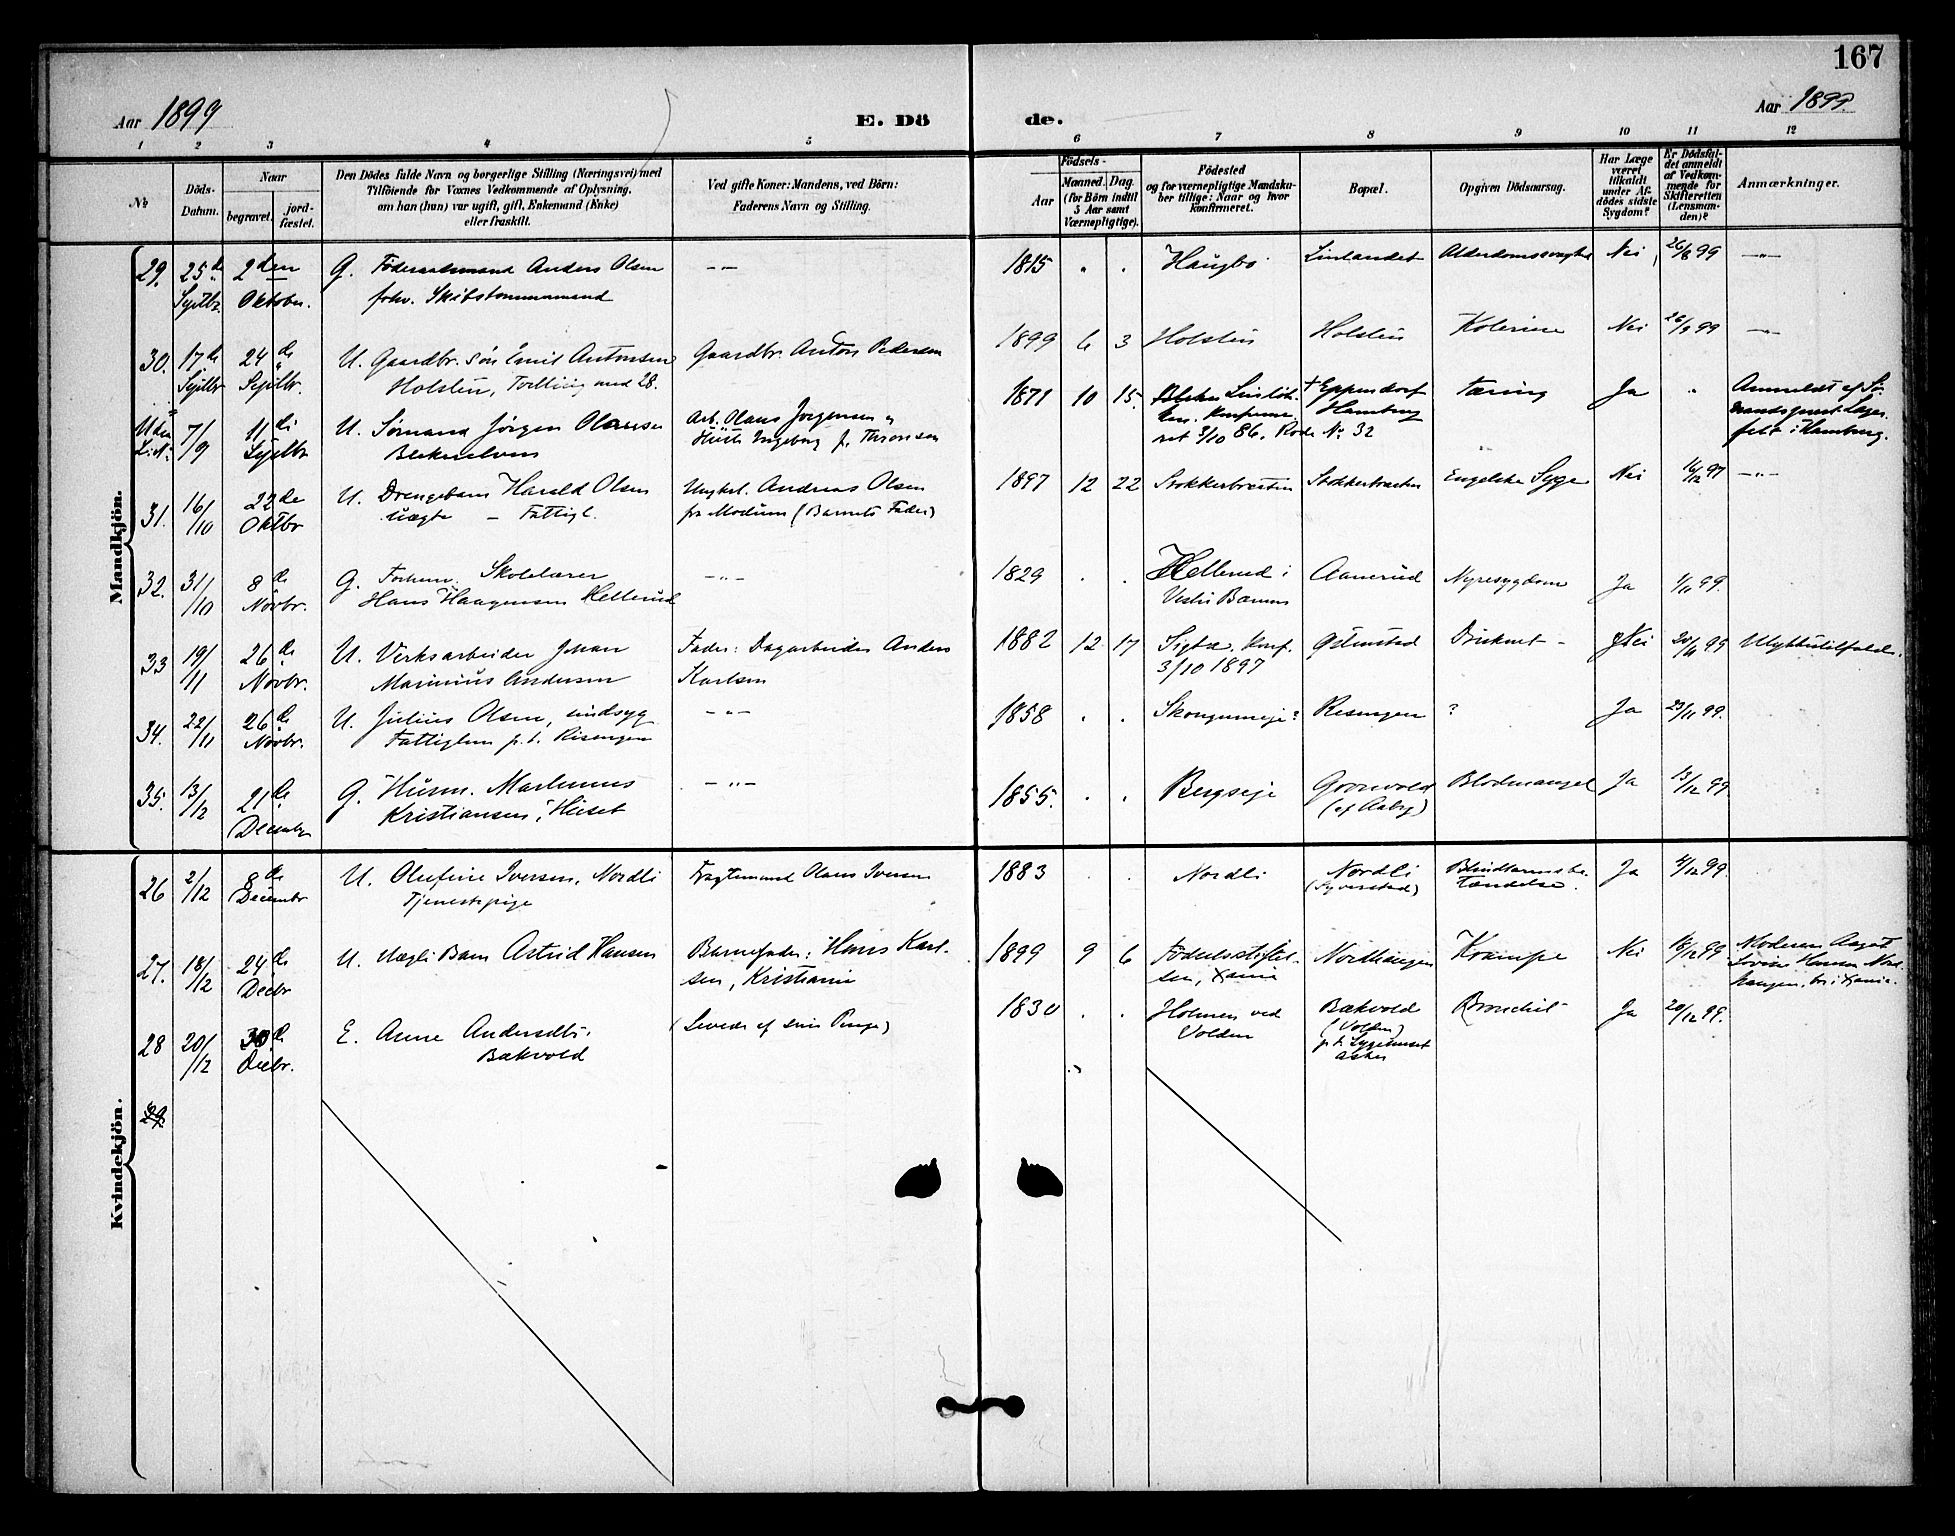 167
Aar 1899
E. Dö
de.
Aar 1899.
1 2 3 4 5 6 7 8 9 10 11 12
No
Döds-
Datum.
Naar
begravet.
jord-
fæstet.
Den Dödes fulde Navn og borgerlige Stilling (Næringsvei) med
Tilföiende for Voxnes Vedkommende af Oplysning,
om han (hun) var ugift, gift, Enkemand (Enke)
eller fraskilt.
Ved gifte Koner: Mandens, ved Börn:
Faderens Navn og Stilling.
Födsels-
Aar
Maaned. Dag.
(for Börn indtil
5 Aar samt
Værnepligtige).
Födested
og for værnepligtige Mandska-
ber tillige: Naar og hvor
konfirmeret.
Bopæl.
Opgiven Dödsaarsag.
Har Læge
været
tilkaldt
under Af-
dödes sidste
Sygdom?
Er Dödsfal-
det anmeldt
af Vedkom-
mende for
Skifteretten
(Lensman-
den)?
Anmærkninger.
Mandkjön.
29. 25de 2den G. Föderaadsmand Anders Olsen — — 1815 " . Haugbo Linlandet Alderdomssvaghed Nei 26/8 99 —"—
Septbr. Oktober. forhv. Skibstømmermand
30. 17de 24de U. Gaardbr. søn Emil Antonsen Gaardbr. Anton Pedersen 1899 6 3 Holstein Holstein Kolerine Nei 26/9 99 —"—
Septbr Septbr. Holstein, Tvilling med 28.
Uden 7/9 11de U. Sømand Jørgen Olausen Arb. Olaus Jørgensen 1871 10 15. + Eppendorf Tæring Ja " Anmeldt af Sø-
Septbr Blekerelven Ingeborg f. Thronsen Konfirme- Hamburg
ret 3/10 86. Rode No 32 felt i Hamburg.
31. 16/10 22de U. Drengebarn Harald Olsen Ungkrl. Andreas Olsen 1897 12 22 Stokkerbraaten Stokkerbraaten Engelske Syge Nei 16/12 97 —"—
Oktbr uægte – Fattigl. fra Modum (Barnets Fader)
32. 31/10 8de G. Forhenv. Skolelærer —"— 1829 . . Hellerud i Aanerud Nyresygdom Ja 1/11 99.
Novbr. Hans Haagensen Hellerud Vestre Bærum
33 19/11 26de U. Verksarbeider Johan Fader: Dagarbeider Anders 1882 12 17 Sigta, Konf. Gjlmstad Druknet – Nei 20/11 99 Ulykkestilfælde.
Novbr. Marinius Andersen Karlsen 3/10 1897
34. 22/11 26de U. Julius Olsen, sindsyg —"— 1858 . . Skougumseie? Risengen ? Ja 23/11 99.
Novbr. Fattiglem p.t. Risengen
35. 13/12 21de G. Husm. Martinius —"— 1855. . . Bergseie Gronvold Blodmangel Ja 13/12 99
Decembr Kristiansen, Huset (af Aaby)
Kvindekjön.
26 2/12 8de U. Olufine Iversen, Nordli Fragtemand Olaus Iversen 1883 . . Nordli Nordli Blindtarmsbe- Ja 4/12 99.
Decembr Tjenestepige (Syverstad) tændelse.
27. 18/12 24de U. Uægte Barn Astrid Hansen Barnefader: Hans Karl- 1899 9 6 Födselsstiftel- Nordhangen Krampe Nei 18/12 99 Moderen Aagot
Decbr sen, Kristiania sen, Xania Lovise Hansen Nord-
hangen, bor i Xania.
28 20/12 30de E. Anne Andersdtr. (Levede af sine Penge) 1830 . . Holmen ved Bækvold Bronchit Ja 20/12 99.
Decbr. Bækvold Volden (Volden)
p.t. Sygehuset
Asker
29.